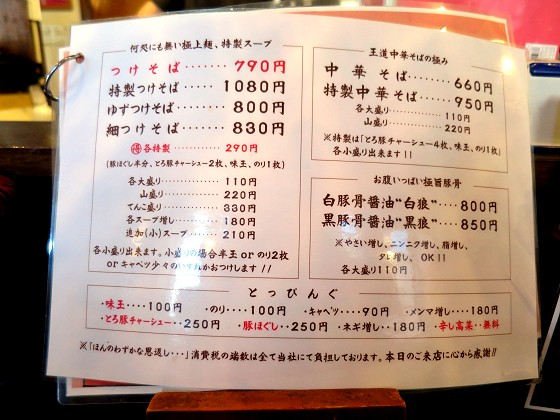 何処にも無い極上麺、特製スープ
つけそば・・・・・・・790円
特製つけそば・・・・・1080円
ゆずつけそば・・・・・・800円
細つけそば・・・・・・・830円
得各特製・・・・・・・・・290円
(豚ほぐし半分、とろ豚チャーシュー2枚、味玉、のり1枚)
各大盛り・・・・・・・・・・110円
山盛り・・・・・・・・・・220円
てんこ盛り・・・・・・・・・330円
各スープ増し・・・・・・・・180円
追加(小)スープ・・・・・・210円
各小盛り出来ます。小盛りの場合半玉orのり2枚
orキャベツ少々のいずれかおつけします!!
王道中華そばの極み
中華そば・・・・・・660円
特製中華そば・・・・・950円
各大盛り・・・・・・・・・・110円
山盛り・・・・・・・・・・220円
※特製は「とろ豚チャーシュー4枚、味玉、のり1枚」
各小盛り出来ます!!
お腹いっぱい極旨豚骨
白豚骨醤油"白狼"・・・・800円
黒豚骨醤油"黒狼"・・・・850円
※やさい増し、ニンニク増し、脂増し、
タレ増し、OK!!
各大盛り110円
とっぴんぐ
・味玉・・・・100円 ・のり・・・・100円 ・キャベツ・・・・90円 ・メンマ増し・・・・180円
・とろ豚チャーシュー・・250円 ・豚ほぐし・・250円 ・ネギ増し・・180円 ・辛し高菜・・無料
※「ほんのわずかな恩返し・・・」消費税の端数は全て当社にて負担しております。本日のご来店に心から感謝!!